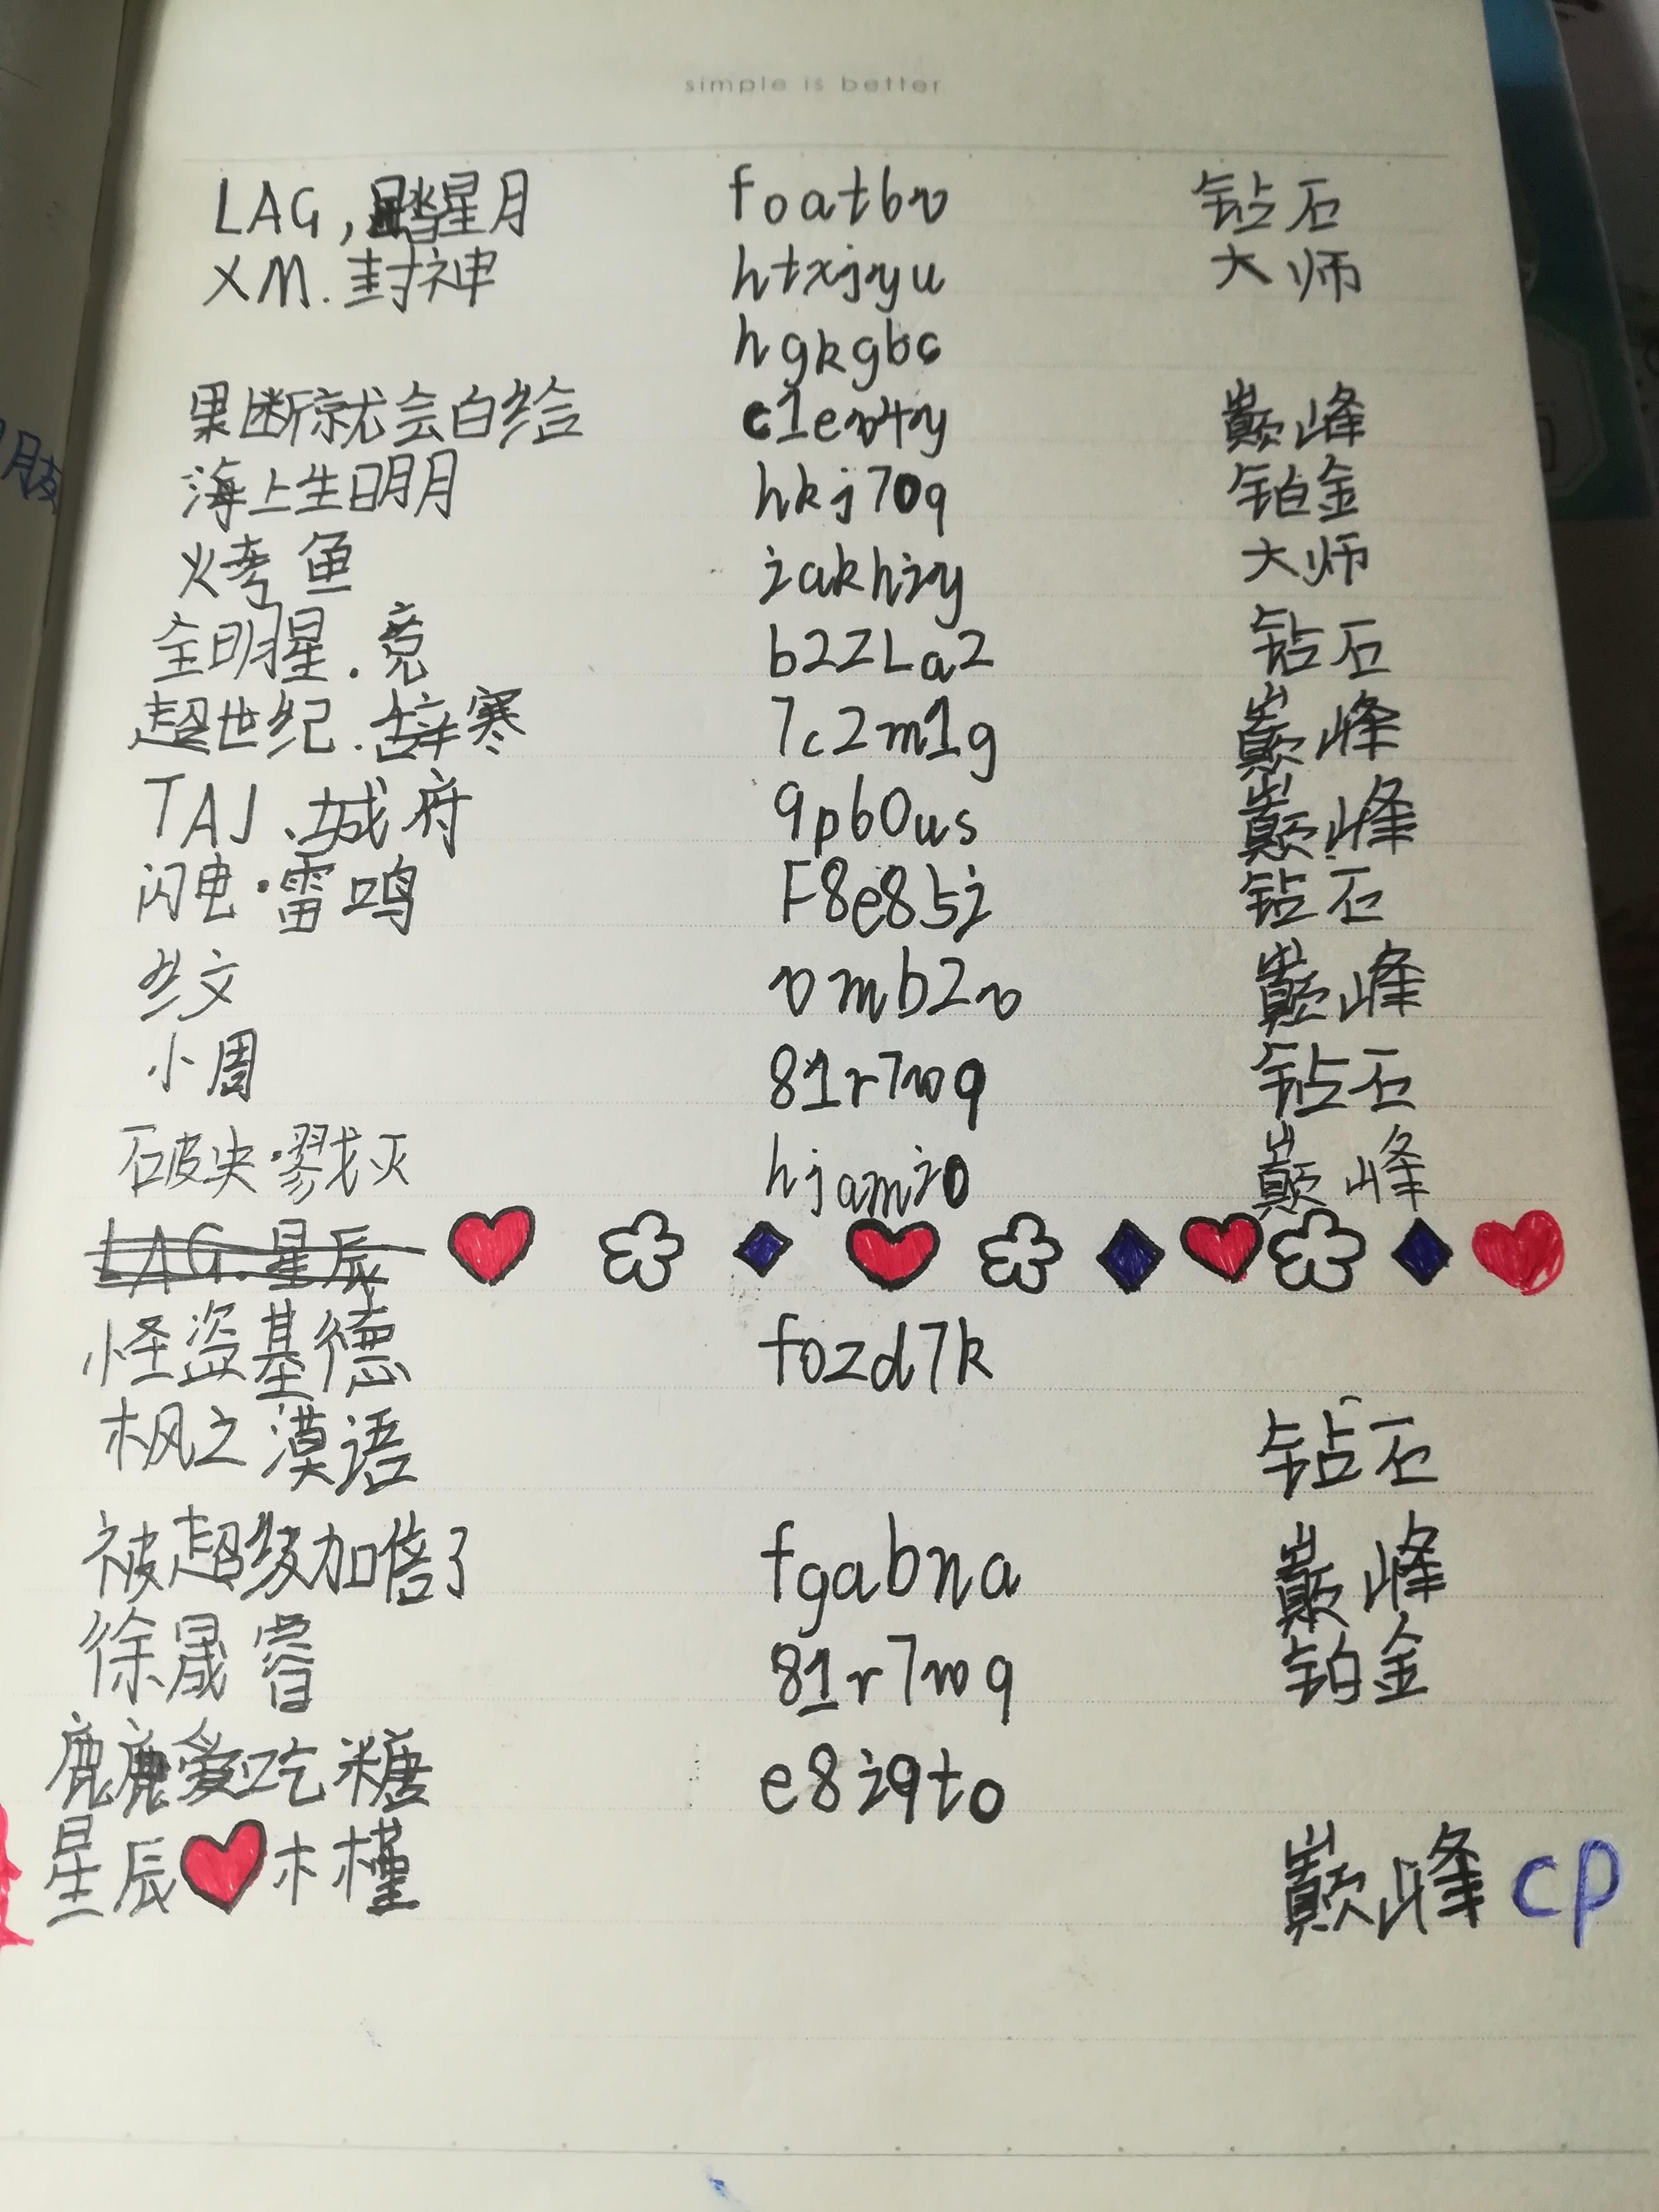 simple is better
LAG, 踏星月 foatbv 钻石
XM.封神 htxjyu 大师
hgkgbc
果断就会白给 c1ev4y 巅峰
海上生明月 hkj70q 铂金
火烤鱼 iakhiy 大师
全明星.竞 b2ZLa2 钻石
超世纪.辞寒 7c2m1g 巅峰
TAJ.城府 9pb0us 巅峰
闪电·雷鸣 F8e85i 钻石
纹 vmb2v 巅峰
小周 81r7wq 钻石
破玦·戮灭 hjami0 巅峰
LAG.星辰
怪盗基德 fozd7k
枫之漠语 钻石
被超级加倍了 fgabna 巅峰
徐晟睿 81r7wq 铂金
鹿鹿爱吃糖 e8i9to
星辰 木槿 巅峰 cp
朋友